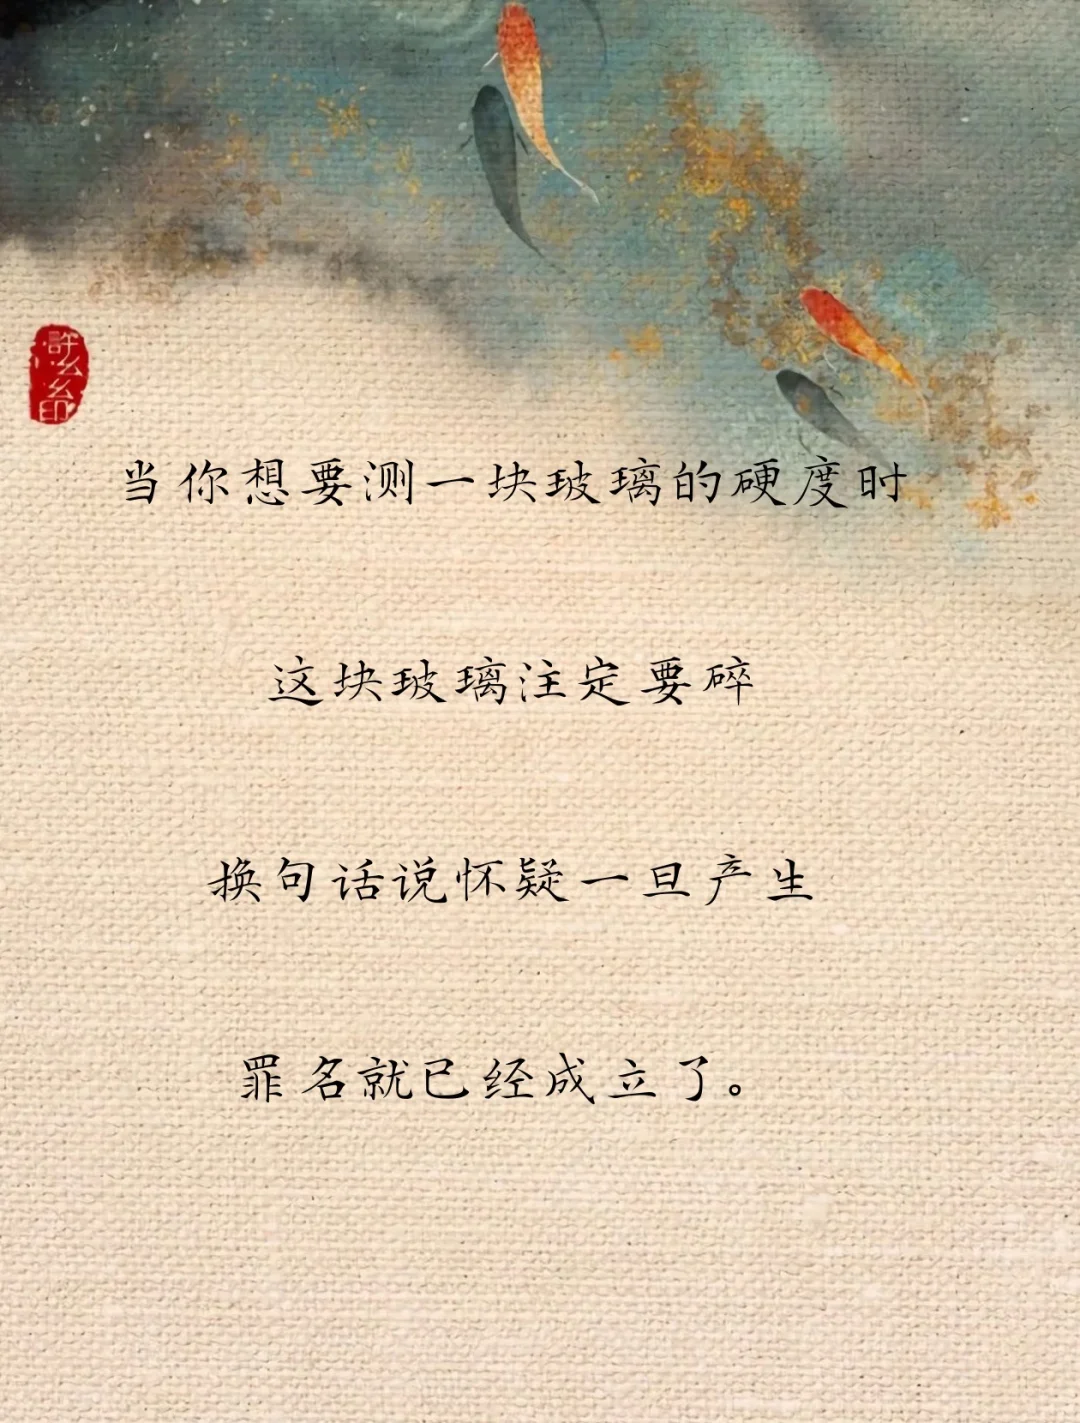 当你想要测一块玻璃的硬度时
这块玻璃注定要碎
换句话说怀疑一旦产生
罪名就已经成立了。